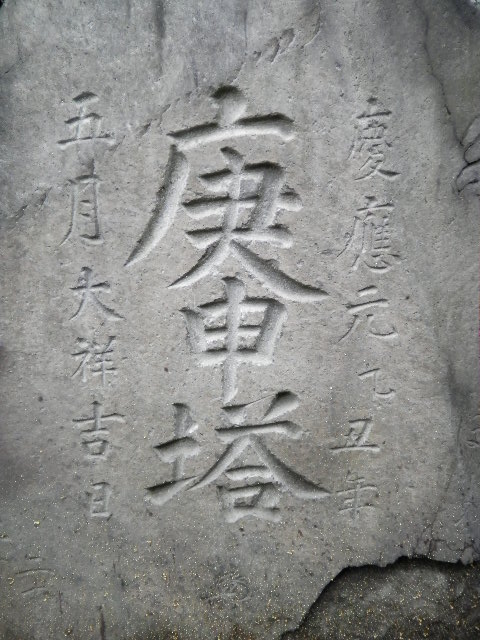 慶應元乙丑年
庚申塔
五月大祥吉日